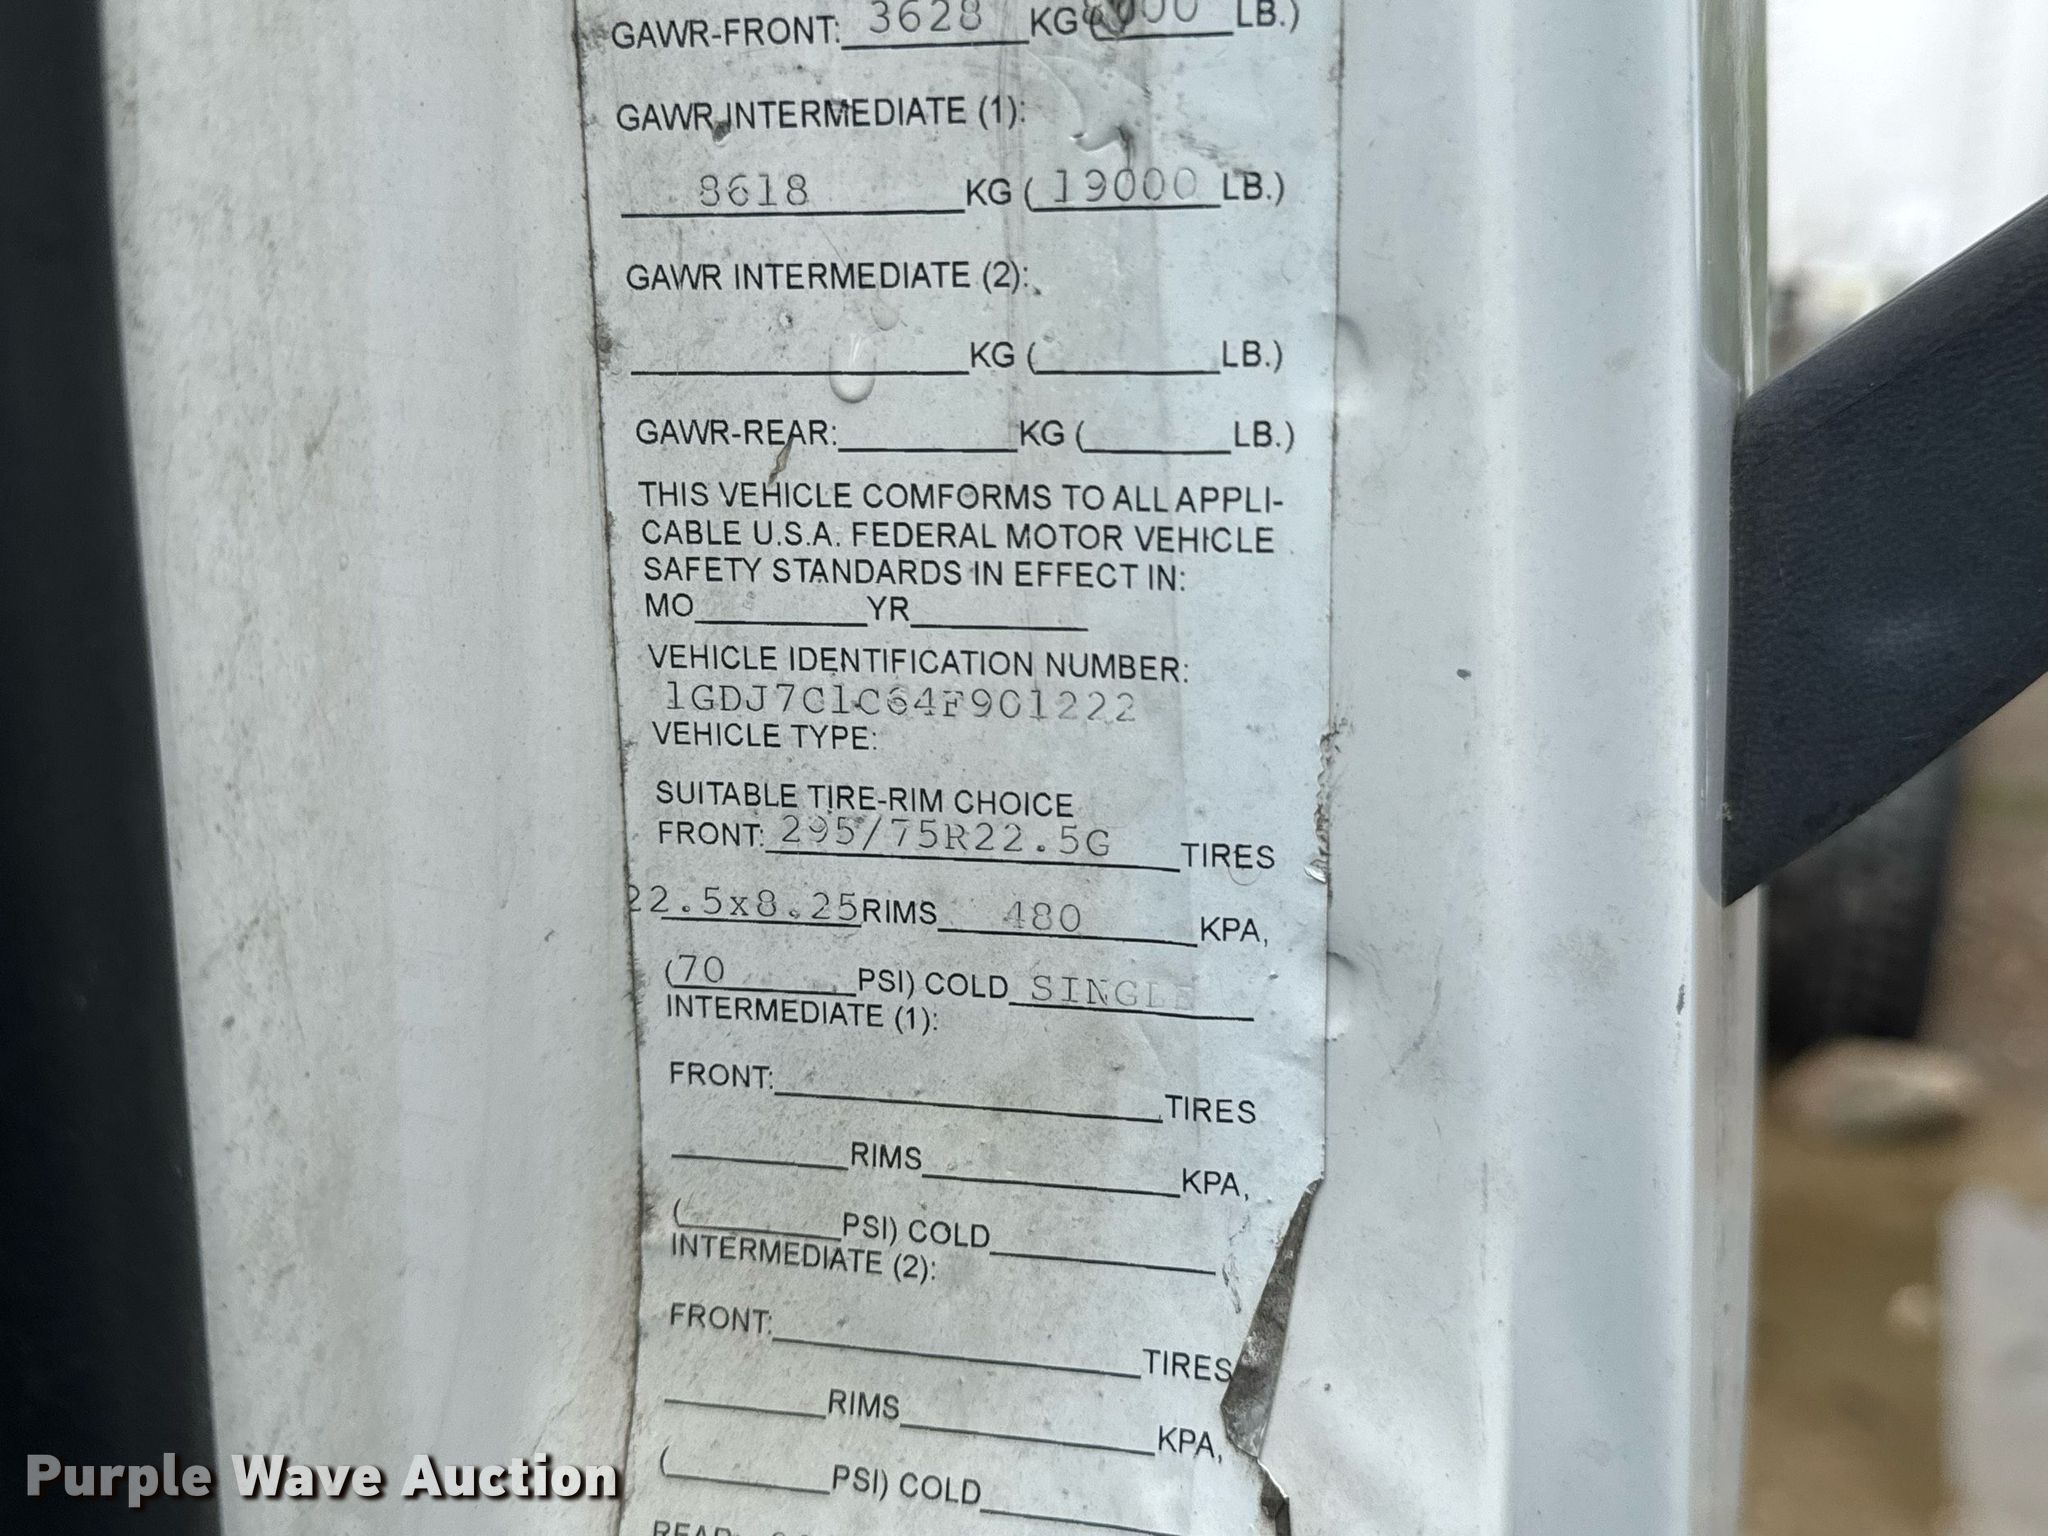 GAWR-FRONT: 3628 KG ( LB.)
GAWR INTERMEDIATE (1):
8618 KG ( 19000 LB.)
GAWR INTERMEDIATE (2):
KG ( LB.)
GAWR-REAR: KG ( LB.)
THIS VEHICLE COMFORMS TO ALL APPLI-
CABLE U.S.A. FEDERAL MOTOR VEHICLE
SAFETY STANDARDS IN EFFECT IN:
MO YR
VEHICLE IDENTIFICATION NUMBER:
1GDJ7C1C64F901222
VEHICLE TYPE:
SUITABLE TIRE-RIM CHOICE
FRONT: 295/75R22.5G TIRES
22.5x8.25 RIMS 480 KPA,
(70 PSI) COLD SINGLE
INTERMEDIATE (1):
FRONT: TIRES
RIMS KPA,
( PSI) COLD
INTERMEDIATE (2):
FRONT: TIRES
RIMS KPA,
( PSI) COLD
Purple Wave Auction